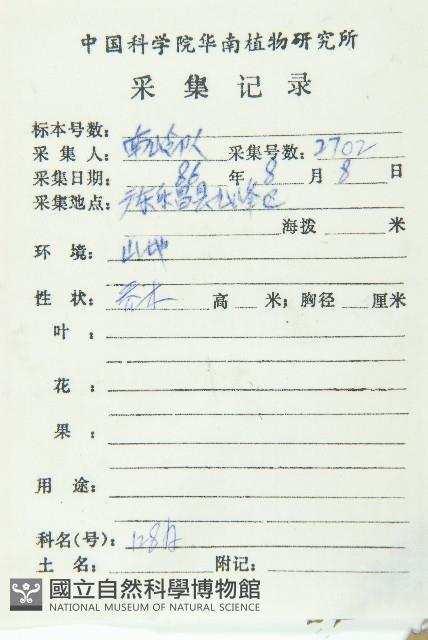 中国科学院华南植物研究所
采集记录
标本号数：
采集人： 采集号数：2702
采集日期：86年8月8日
采集地点：广东乐昌县
海拨 米
环境：山地
性状：乔木 高 米；胸径 厘米
叶：
花：
果：
用途：
科名(号)：128A
土名： 附记：
國立自然科學博物館
NATIONAL MUSEUM OF NATURAL SCIENCE